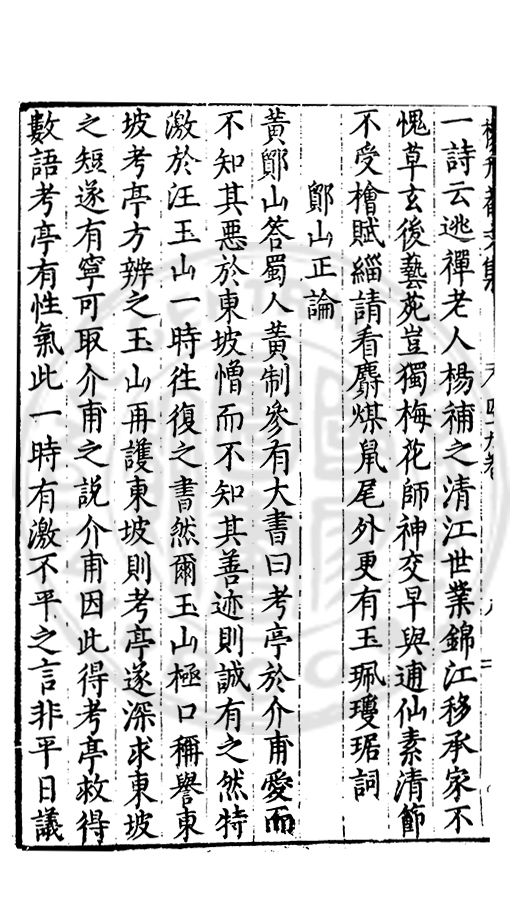 一詩云逃禪老人楊補之清江世業錦江移承家不
愧草玄後藝苑豈獨梅花師神交早與逋仙素清節
不受檜賦緇請看麝煤鼠尾外更有玉珮瓊琚詞
鄮山正論
黃鄮山答蜀人黃制參有大書曰考亭於介甫愛而
不知其惡於東坡憎而不知其善迹則誠有之然特
激於汪玉山一時往復之書然爾玉山極口稱譽東
坡考亭方辨之玉山再護東坡則考亭遂深求東坡
之短遂有寧可取介甫之説介甫因此得考亭救得
數語考亭有性氣此一時有激不平之言非平日議